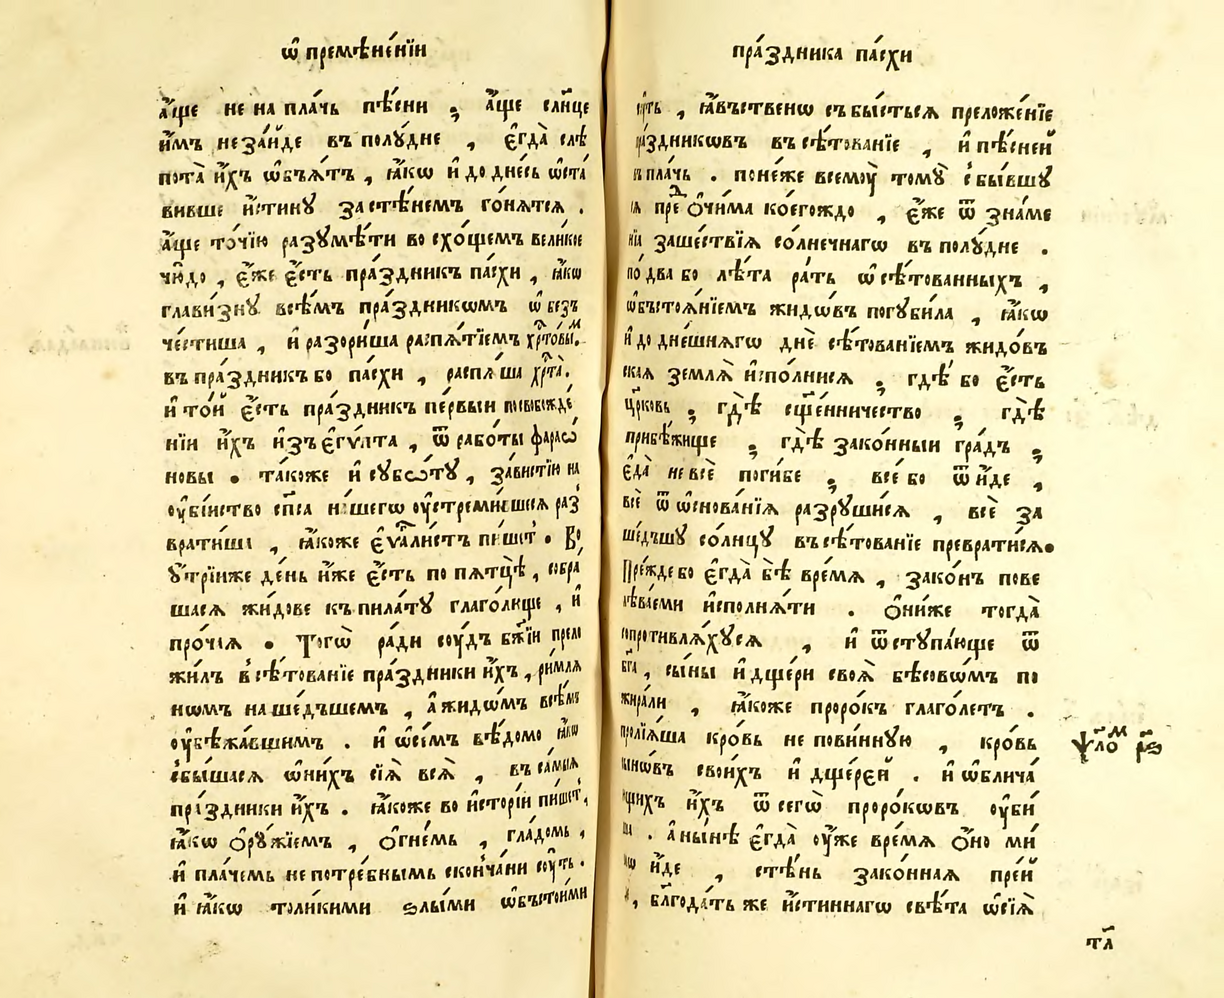 ѡ҆ премѣне́нїи
а҆́ще не на пла́чь пѣ́сни ; а҆́ще сл҃нце
и҆̀мъ не за́иде въ полу́дне , є҆гда̀ слѣ
пота̀ и҆̀хъ ѡ҆бъѧ́тъ , ꙗ҆́кѡ и҆ до дне́сь ѡ҆ста
вивше и҆́стинꙋ за стѣ́немъ гоня́тся .
а҆́ще то́чїю разꙋмѣ́ти во схо́щемъ вели́кое
чю́до , є҆́же є҆́сть пра́здникъ па́схи , ꙗ҆́кѡ
глави́знꙋ всѣ́мъ пра́здникѡмъ ѡ҆ безъ
че́стиша , и҆ разори́ша распѧ́тїемъ хр҃то́вы́м .
въ пра́здникъ бо па́схи , распѧ́ша хр҃та̀ .
и҆ то́й є҆́сть пра́здникъ пе́рвыи посвобожде́
нїи и҆́хъ и҆зъ є҆гѵ́пта , ѿ рабо́ты фараѡ́
новы . та́коже и҆ сꙋбѡ́тꙋ , за́вистїю на
оу҆бі́иство сп҃са на́шегѡ оу҆стреми́вшеся раз̾
врати́ша , ꙗ҆́коже є҆ѵⷢ҇али́стъ пи́шет̾ . Во
оу҆́трїиже де́нь и҆́же є҆́сть по пѧтцѣ̀ , собра́
шася жи́дове къ пила́тꙋ глаго́люще , и҆
про́чїѧ . Тогѡ̀ ра́ди сꙋ́дъ бж҃їи прело
жи́лъ в̾ сѣ́тованїе пра́здники и҆́хъ , ри́млѧ
нѡмъ наше́дъшемъ , а҆ жидѡ́мъ всѣ́мъ
оу҆бѣжа́вшимъ . и҆ ѡ҆ се́мъ вѣ́домо ꙗ҆́кѡ
сбы́шася ѡ҆ ни́хъ сїѧ̀ всѧ̀ , въ са́мыѧ
пра́здники и҆́хъ . ꙗ҆́коже во и҆сто́рїи пи́шет̾ ,
ꙗ҆́кѡ ѻ҆рꙋ́жїемъ , ѻ҆гне́мъ , гла́домь ,
и҆ пла́чемь непотре́бнымь сконча́ни сꙋ́ть .
и҆ ꙗ҆́кѡ толи́кими ѕлы́ми ѡ҆бъстои́ми
пра́здника па́схи
сꙋ́ть , ꙗ҆́въственѡ събы́сться преложе́нїе
пра́здникѡвъ въ сѣ́тованїе , и҆ пѣ́сней
въ пла́чь . поне́же всемоу҆̀ томꙋ̀ сбы́вшꙋ
ся преⷣ ѻ҆чи́ма коего́ждо , є҆́же ѿ зна́ме
нїа заше́ствїѧ со́лнечнагѡ въ полу́дне .
по два бо лѣ́та ра́ть ѡ҆ сѣ́тованныхъ ,
ѡ҆бъстоѧ́нїемъ жидѡ́въ погꙋби́ла , ꙗ҆́кѡ
и҆ до дне́шнягѡ днѐ сѣ́тованїемъ жидо́въ
ская землѧ̀ и҆спо́лнися ; гдѣ́ бо є҆́сть
цр҃ковь ; гдѣ̀ сщ҃е́нничество ; гдѣ̀
прибѣ́жище ; гдѣ̀ зако́нныи гра́дъ ;
є҆да̀ не всѐ поги́бе ; все́ бо ѿи́де ,
всѐ ѿ ѡ҆снова́нїѧ разрꙋши́ся , всѐ за
ше́дъшꙋ со́лнцꙋ въ сѣ́тованїе преврати́ся .
Пре́жде бо є҆гда̀ бѣ̀ вре́мѧ , зако́нъ пове
лѣва́еми и҆сполнѧ́ти . ѻ҆ни́же тогда̀
сопротивлѧ́хꙋся , и҆ ѿступа́юще ѿ
бг҃а , сы́ны и҆ дще́ри своѧ̀ бѣсовѡ́мъ по
жира́ли , ꙗ҆́коже проро́къ глаго́летъ .
пролїѧ́ша кро́вь непови́ннꙋю , кро́вь
сынѡ́въ свои́хъ и҆ дщере́й . и҆ ѡ҆блича́
ющихъ и҆́хъ ѿ сегѡ̀ проро́кѡвъ оу҆би́
ша . а҆ ны́нѣ є҆гда̀ оу҆́же вре́мѧ ѻ҆́но ми
мѡ и҆́де , стѣ́нь зако́нная пре́й
де , блг҃ода́ть же и҆́стиннагѡ свѣ́та ѡ҆сїѧ̀
ѱало́ⷨ р҃ѕ
тл҃